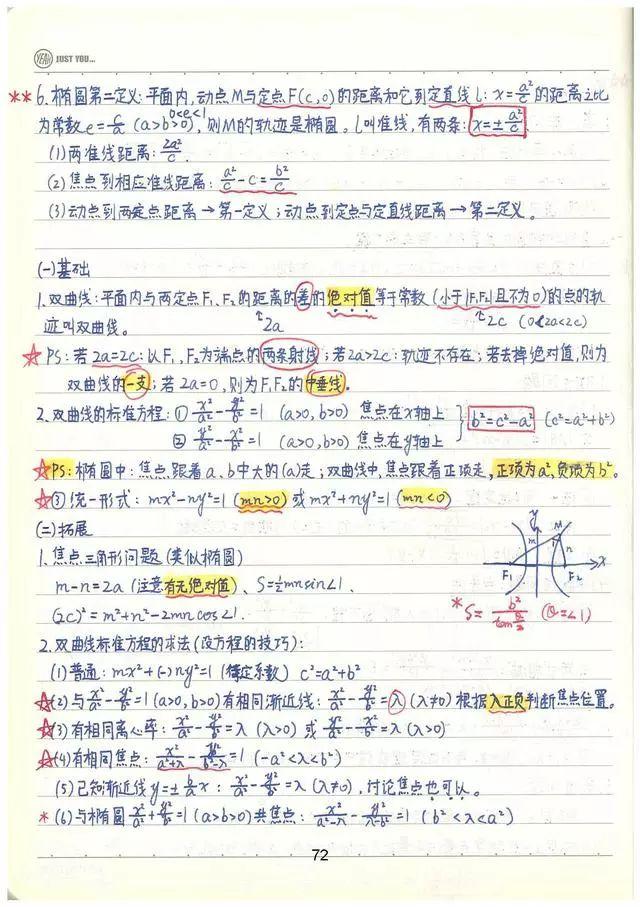 YEAH JUST YOU...
** 6. 椭圆第二定义: 平面内, 动点M与定点F(c,0)的距离和它到定直线 l: x=a²/c 的距离之比
为常数 e=c/a (a>b>0), 0<e<1 则M的轨迹是椭圆。l叫准线, 有两条: x=±a²/c.
(1) 两准线距离: 2a²/c.
(2) 焦点到相应准线距离: a²/c - c = b²/c
(3) 动点到两定点距离 → 第一定义; 动点到定点与定直线距离 → 第二定义。
(一) 基础
1. 双曲线: 平面内与两定点F₁、F₂的距离的差的绝对值等于常数 (小于|F₁F₂|且不为0)的点的轨
迹叫双曲线。 ↑2a ↑2c (0<2a<2c)
☆ PS: 若2a=2c: 以F₁, F₂为端点的两条射线; 若2a>2c: 轨迹不存在; 若去掉绝对值, 则为
双曲线的一支; 若2a=0, 则为F₁F₂的中垂线。
2. 双曲线的标准方程: ① x²/a² - y²/b² =1 (a>0, b>0) 焦点在x轴上 } b²=c²-a² (c²=a²+b²)
② y²/a² - x²/b² =1 (a>0, b>0) 焦点在y轴上
☆ PS: 椭圆中: 焦点跟着a、b中大的(a)走; 双曲线中, 焦点跟着正项走, 正项为a², 负项为b²。
☆ ③ 统一形式: mx²-ny²=1 (mn>0) 或 mx²+ny²=1 (mn<0)
(二) 拓展
1. 焦点三角形问题 (类似椭圆)
m-n=2a (注意有无绝对值)、S=½mnsin∠1.
(2c)²=m²+n²-2mncos∠1.
y M m 1 n x F₁ F₂
* S= b²/tan θ/2 (θ=∠1)
2. 双曲线标准方程的求法 (设方程的技巧):
(1) 普通: mx²+(-)ny²=1 (待定系数) c²=a²+b²
☆ (2) 与 x²/a² - y²/b² =1 (a>0, b>0) 有相同渐近线: x²/a² - y²/b² =λ (λ≠0) 根据λ正负判断焦点位置。
☆ (3) 有相同离心率: x²/a² - y²/b² =λ (λ>0) 或 y²/a² - x²/b² =λ (λ>0)
☆ (4) 有相同焦点: x²/a²+λ - y²/b²-λ =1 (-a²<λ<b²)
(5) 已知渐近线 y=±b/a x: x²/a² - y²/b² =λ (λ≠0), 讨论焦点也可以。
* (6) 与椭圆 x²/a² + y²/b² =1 (a>b>0) 共焦点: x²/a²-λ - y²/λ-b² =1 (b²<λ<a²)
72